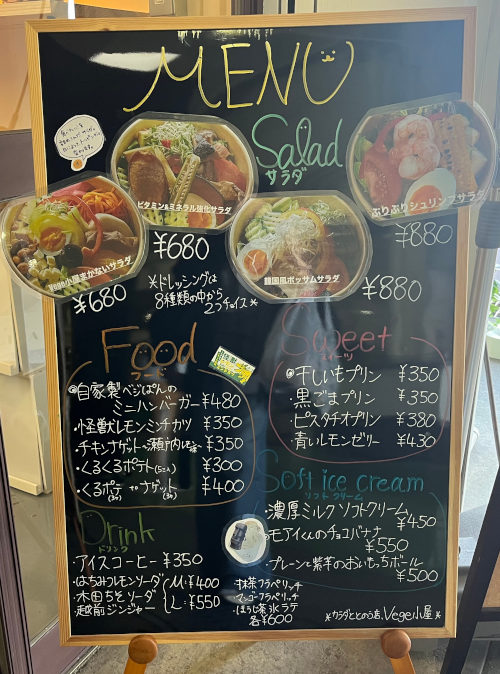 MENU
Salad
サラダ
ビタミン&ミネラル強化サラダ
¥680
Vege小屋まかないサラダ
¥680
ぷりぷりシュリンプサラダ
¥880
韓国風ポッサムサラダ
¥880
※ドレッシングは
8種類の中から
2つチョイス※
Food
フード
◎自家製ベジぱんの
ミニハンバーガー ¥480
・怪獣レモンミンチカツ ¥350
・チキンナゲット〜瀬戸内レモン味 ¥350
・くるくるポテト(5コ入) ¥300
・くるポテ やナゲット ¥400
Sweet
スイーツ
◎干しいもプリン ¥350
・黒ごまプリン ¥350
・ピスタチオプリン ¥380
・青いレモンゼリー ¥430
Soft ice cream
ソフトクリーム
・濃厚ミルクソフトクリーム
¥450
・モアイくんのチョコバナナ
¥550
・プレーンと紫芋のおいもっちボール
¥500
Drink
ドリンク
・アイスコーヒー ¥350
・はちみつレモンソーダ
・木田ちそソーダ
・越前ジンジャー
M:¥400
L:¥550
抹茶フラペリッチ
マンゴーフラペリッチ
ほうじ茶氷ラテ
各¥600
※カラダととのう店、Vege小屋※